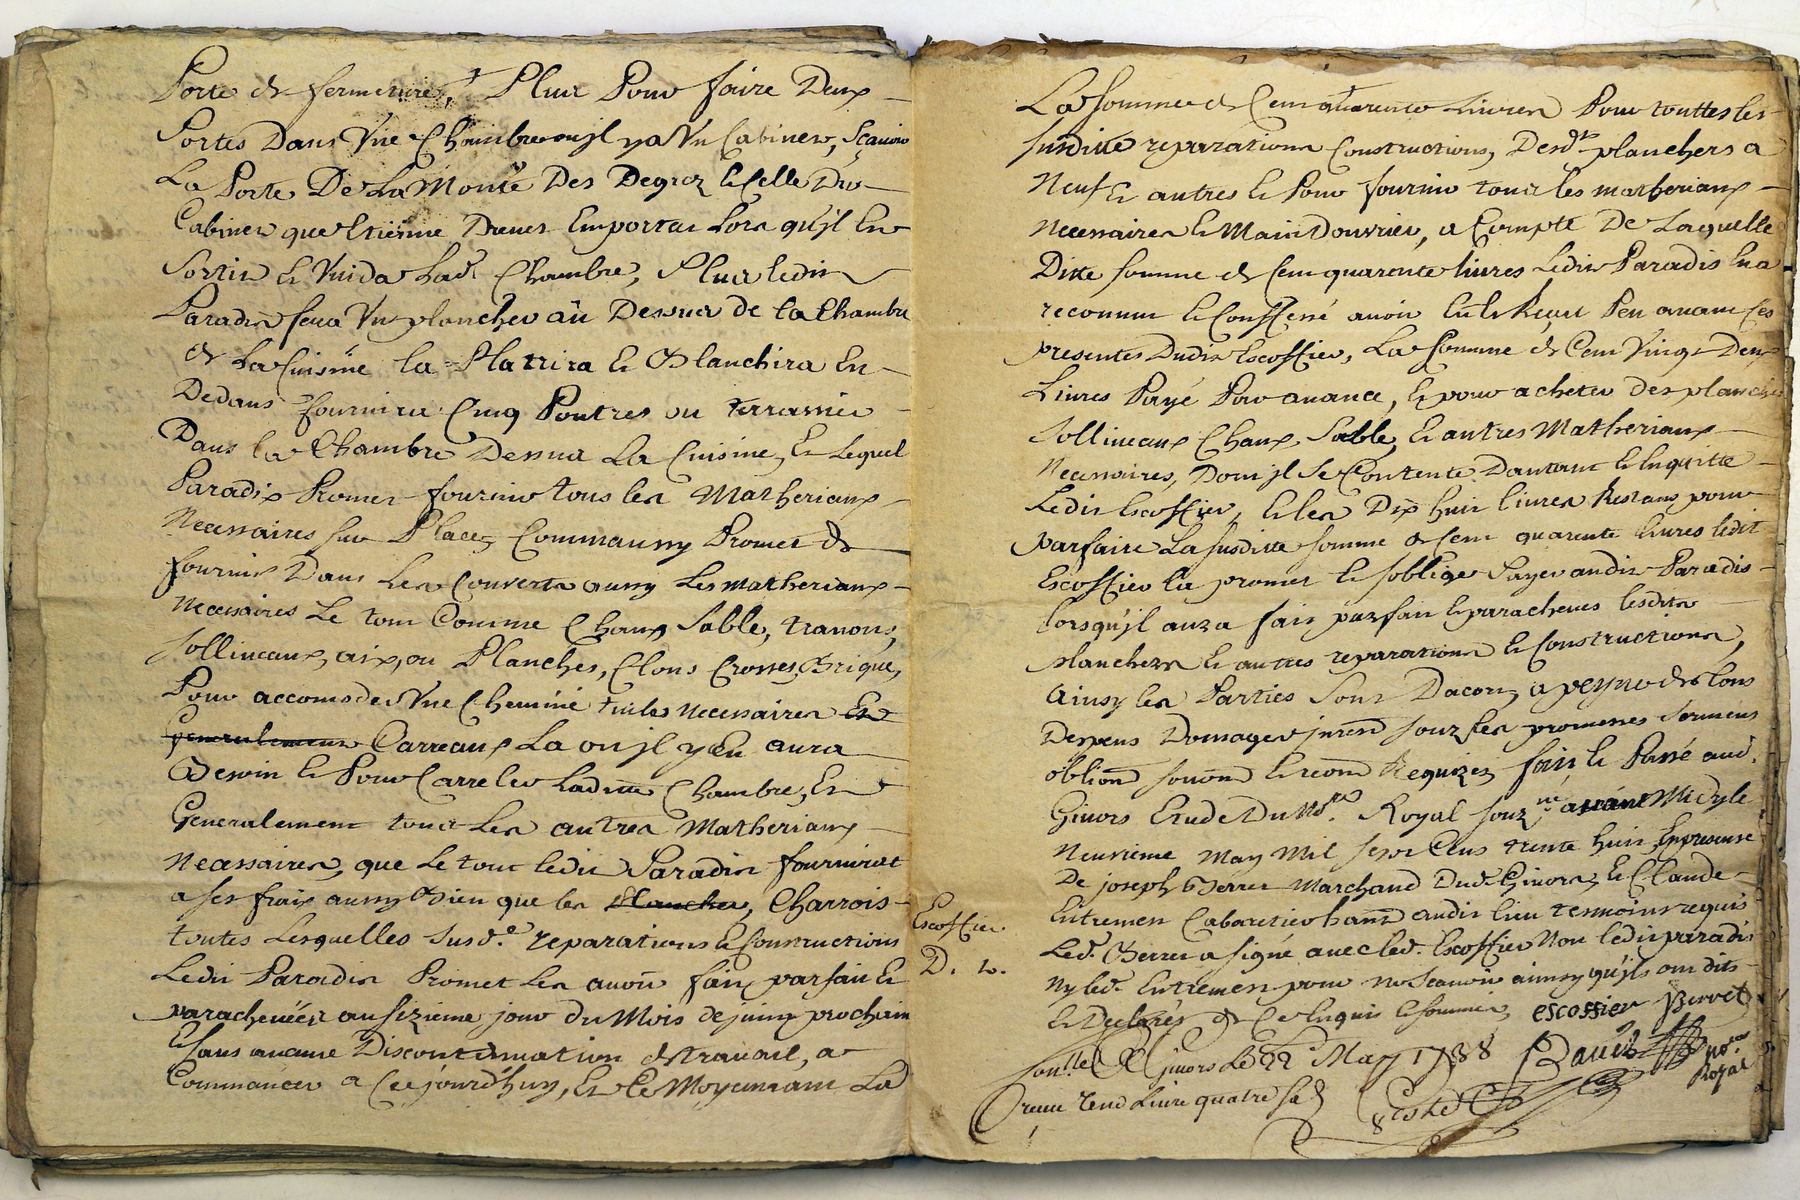 Porte & fermeture, Plus Pour faire Deux
Portes Dans Vne Chambre ou jl ya Vn Cabinet, Sçauoir
La Porte De La Monté Des Degrez & Celle Du
Cabinet que Etienne Dreuet Emportat Lors qu'jl En
Sortit & Vuida Lad. Chambre, Plus ledit
Paradis fera Vn plancher aü Dessus de la Chambre
& La Cuisine la Platrira & Blanchira En
Dedans fournira Cinq Poutres ou terrassier
Dans la Chambre Dessus La Cuisine, Et Lequel
Paradis Promet fournir tous les Matheriaux
Necessaires sur Place, Comm'aussy Promet de
fournir Dans Les Couverts aussy Les matheriaux
necessaires Le tout Comme Chaux Sable, trauons,
Solliueaux, aix, ou Planches, Clous Crosses Brique,
Pour accomoder Vne Cheminé tuiles necessaires Et
generalement Carreaux La ou jl y En aura
Besoin & Pour Carreler Laditte Chambre, Et
Generalement tous Les autres Matheriaux
necessaires, que Le tout ledit Paradis fournirat
a ses frais aussy Bien que les Planches, Charrois
toutes Lesquelles susd.e reparations & Constructions
Ledit Paradis Promet Les auoir fait, parfait Et
parachevées au sizieme jour du Mois de juin prochain
& sans aucune Discontinuation de trauail, a
Commancer a Ce jourd'huy, Et Ce Moyennant La
Escoffier
D. L.
La Somme de Cent quarente Liures Pour touttes les
susditte reparations Constructions, Desd. planchers a
Neuf & autres & Pour fournir tous les matheriaux
necessaires & Main Douvrier, a Compte De Laquelle
Ditte somme de Cent quarente liures Ledit Paradis En a
reconnu & Confessé auoir Eu & Reçut Peu auant Ces
presentes Dudit Escoffier, La Somme de Cent Vingt Deux
Liures Payé Par auance, & pour acheter des planches
Solliueaux Chaux, Sable, & autres Matheriaux
Necessaires, Dont jl Se Contente Dautant & En quitte
Ledit Escoffier, & les Dix huit liures Restans pour
parfaire La Susditte somme de Cent quarente liures ledit
Escoffier La promet & soblige Payer audit Paradis
lorsqu'jl aura fait parfait & paracheué lesdits
planchers & autres reparations & Constructions,
Ainsy les Parties Sont Dacord, a peyne de tous
Despens Domages jnterests sous les promesses serments
obliõns soumõns & renõns Requizes, fait & Passé aud.
Giuors Etude Du No.re Royal souz.ne auant Midy le
neuvieme May Mil Sept Cens trente huit En presence
De joseph Berret Marchand Dud. Giuors, & Claude
Entremen Cabaretier hant audit lieu temoins requis
Led. Berret a signé auec led. Escoffier Non ledit paradis
ny led. Entremen pour ne Scauoir ainsy qu'jls ont dits
& Declarés de Ce Enquis & sommés, escoffier Berret
Con.lle A Giuors Le 22 May 1738
receu Liure quatre no.re
Royal